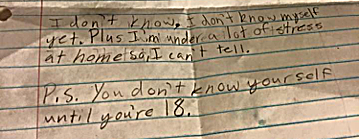 I don't know, I don't know myself
yet. Plus I'm under a lot of stress
at home so, I can't tell.
P.S. You don't know yourself
until you're 18.